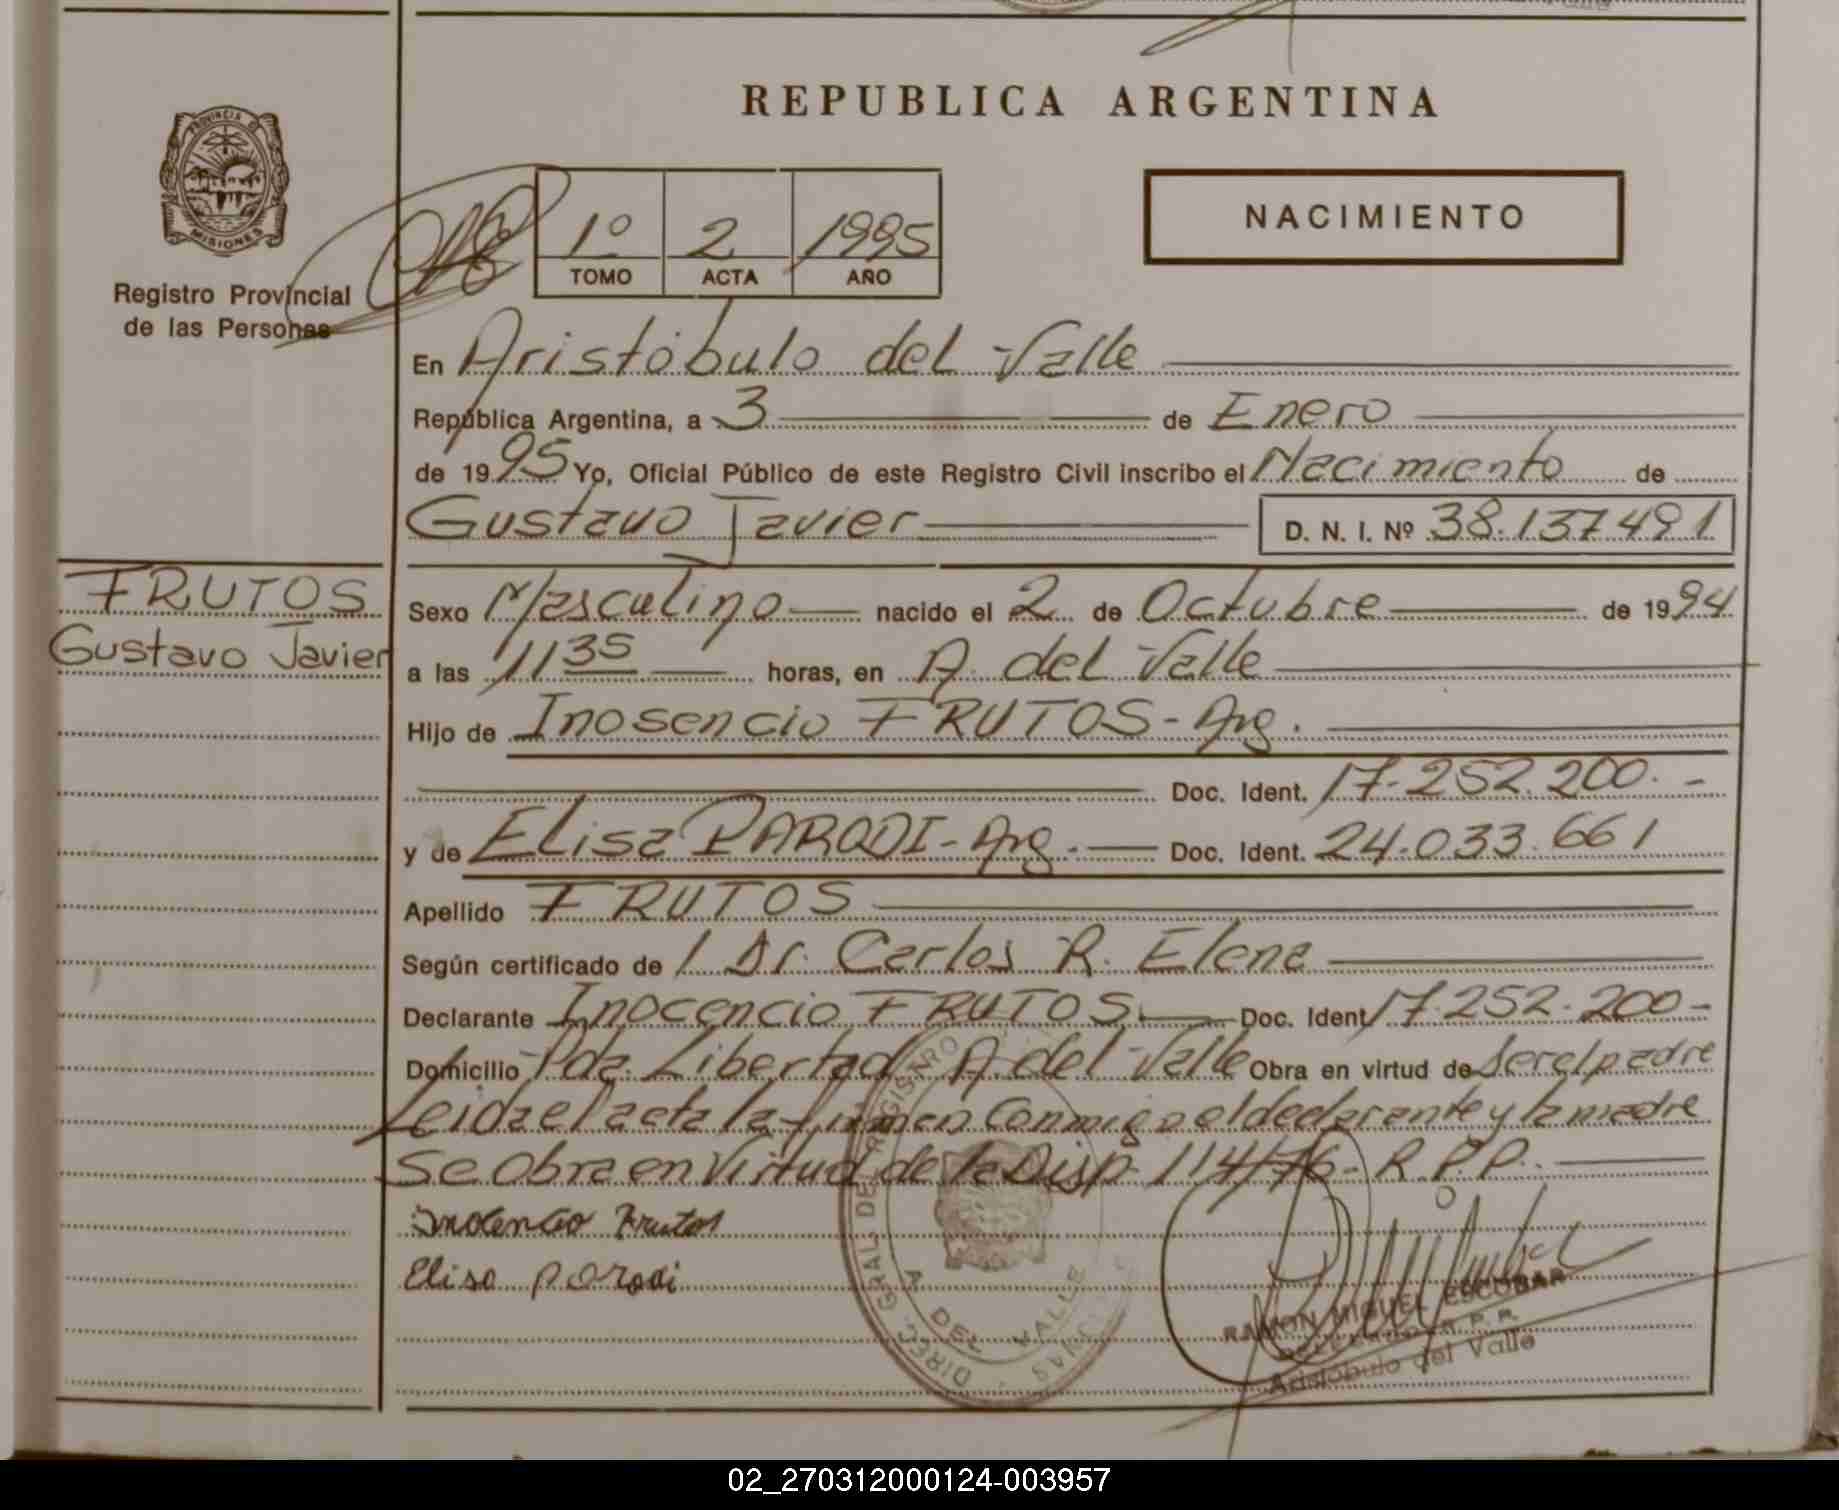 REPUBLICA ARGENTINA
PROVINCIA DE
MISIONES
Registro Provincial
de las Personas
1º 2 1995
TOMO ACTA AÑO
NACIMIENTO
En Aristóbulo del Valle
República Argentina, a 3 de Enero
de 1995 Yo, Oficial Público de este Registro Civil inscribo el Nacimiento de
Gustavo Javier D. N. I. Nº 38.137491
FRUTOS
Gustavo Javier
Sexo Masculino nacido el 2 de Octubre de 1994
a las 1135 horas, en A. del Valle
Hijo de Inosencio FRUTOS - Arg.
Doc. Ident. 17.252.200.-
y de Elisa PARODI - Arg. Doc. Ident. 24.033.661
Apellido FRUTOS
Según certificado de / Dr. Carlos R. Elena
Declarante Inocencio FRUTOS Doc. Ident 17.252.200-
Domicilio Pda. Libertad A. del Valle Obra en virtud de ser el padre
Leida el acta la firman conmigo el declarante y la madre
Se obra en virtud de la Disp. 114/76 - R.P.P.
Inocencio Frutos
Elisa Parodi
DIREC. GRAL. DEL REGISTRO
A. DEL VALLE
RAMON MIGUEL ESCOBAR
DELEGADO R. P. P.
Aristóbulo del Valle
02_270312000124-003957